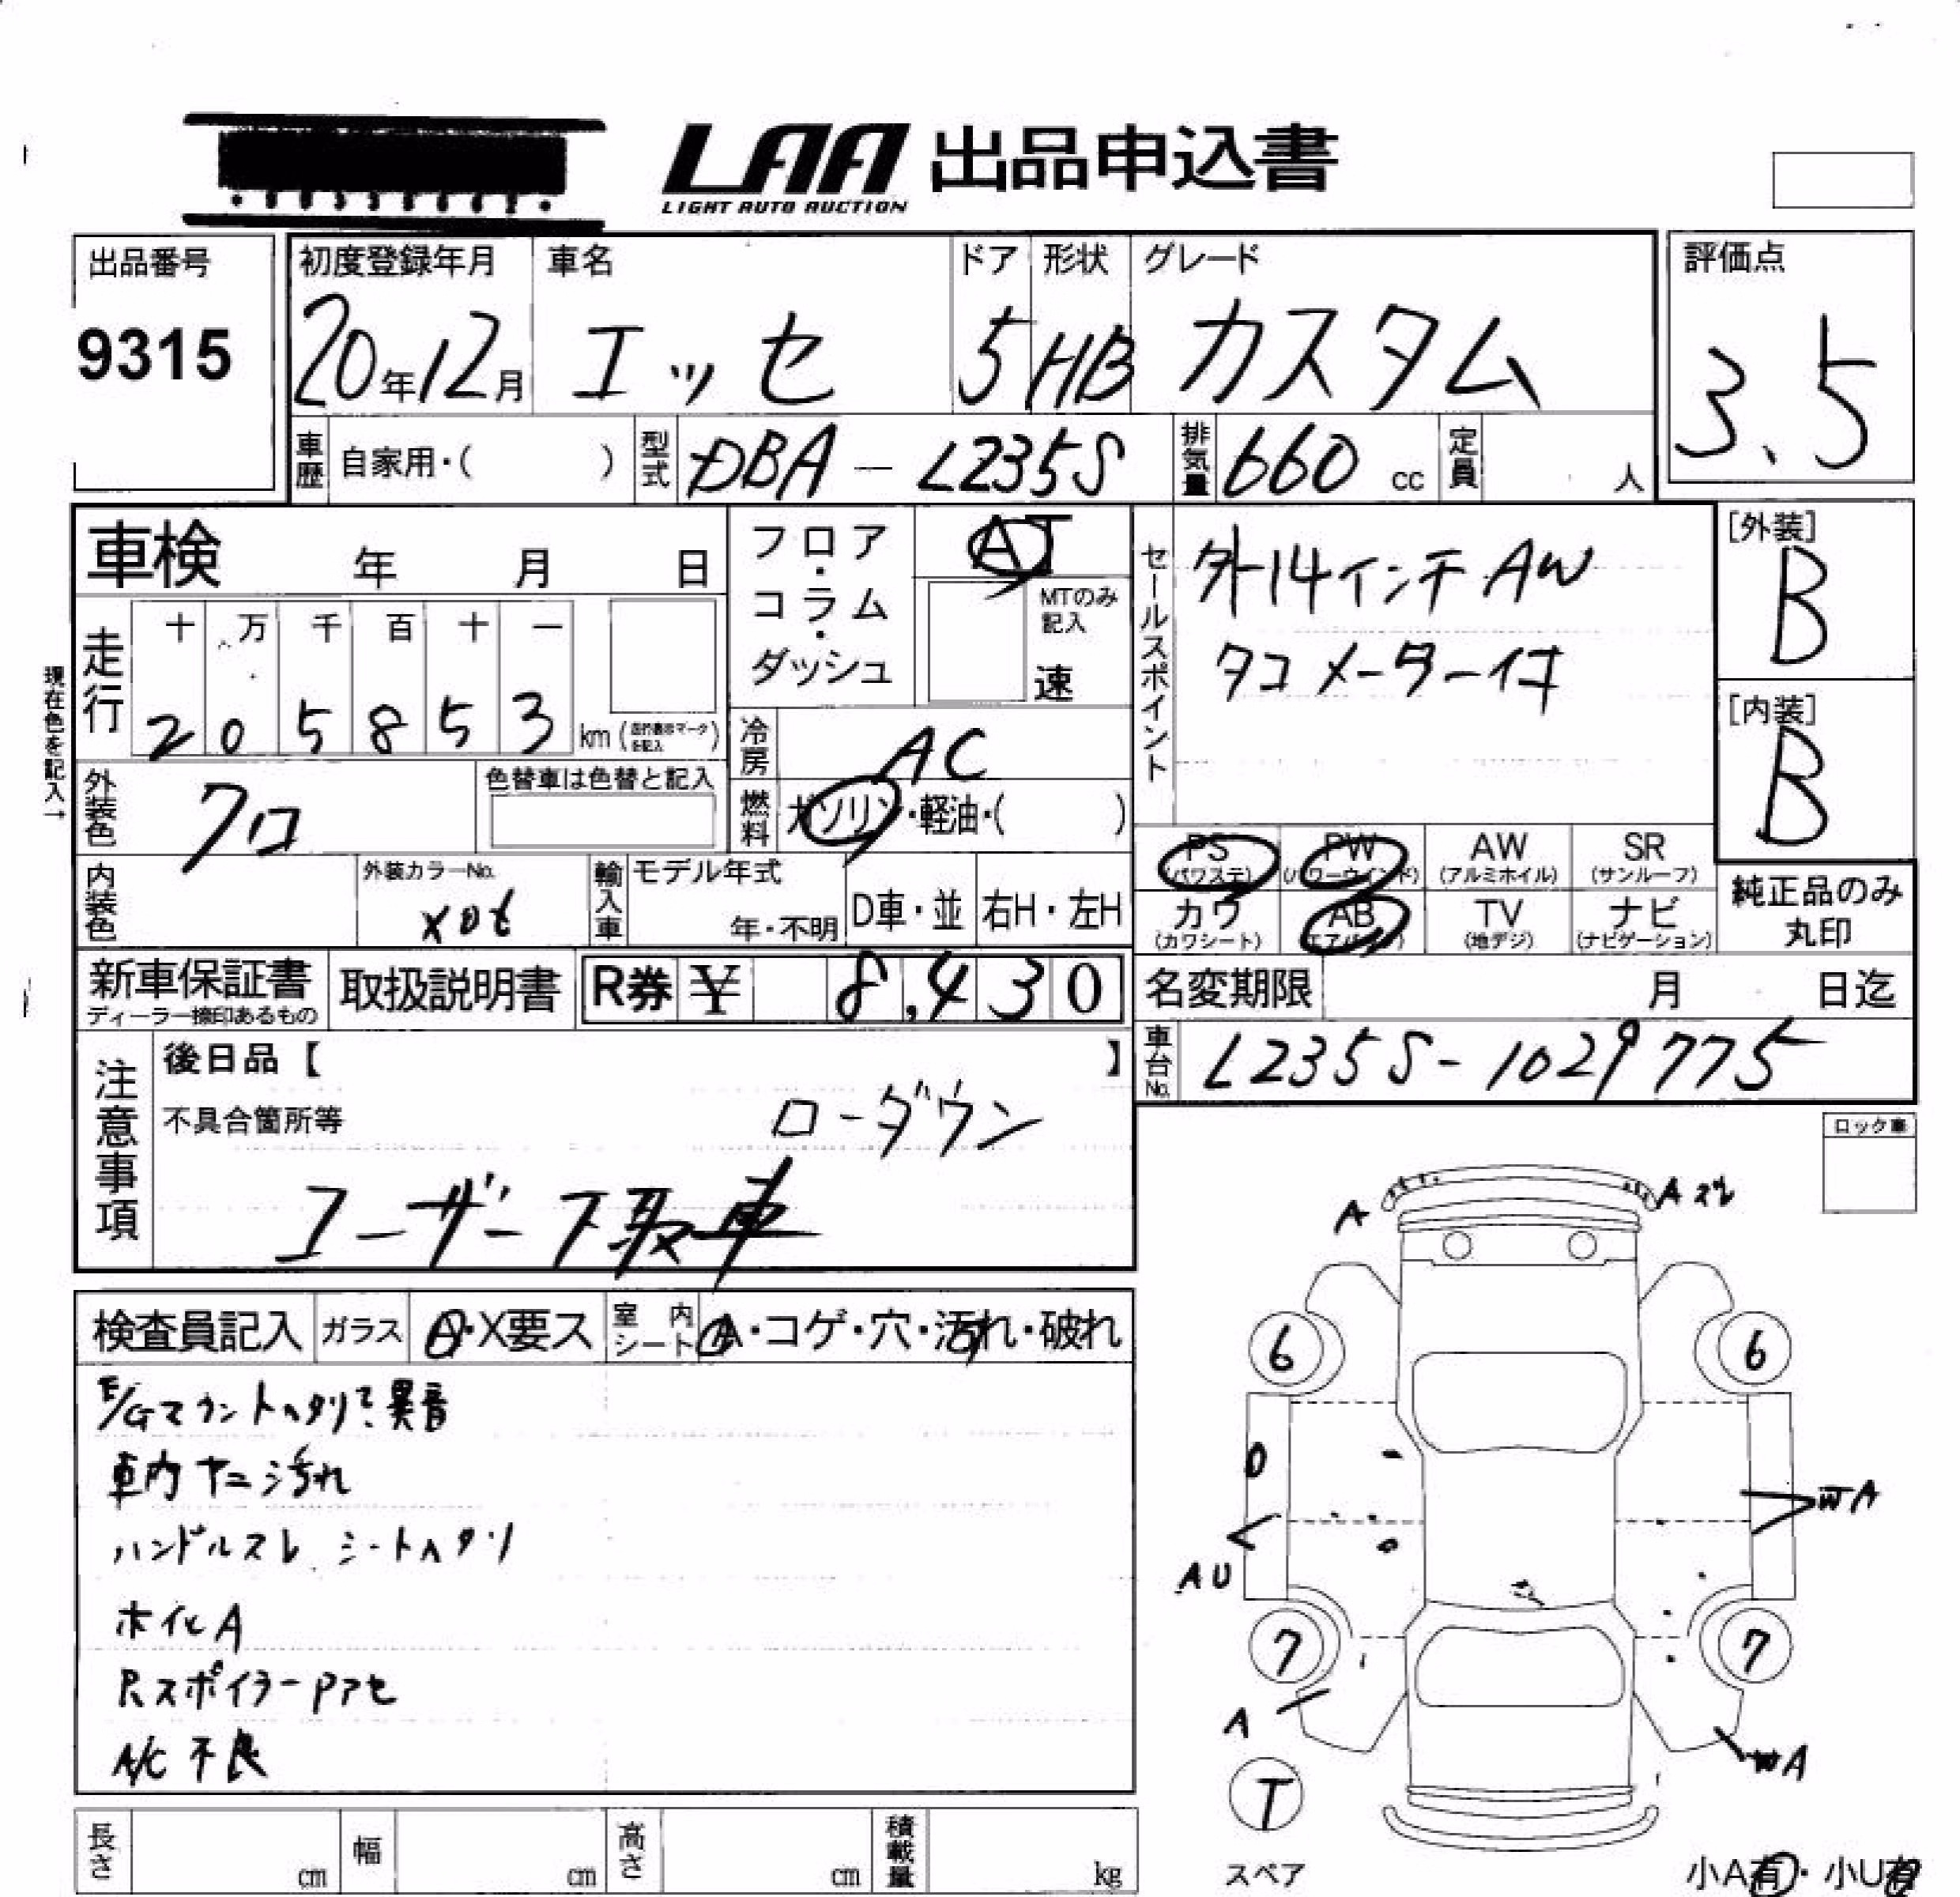 LAA 出品申込書
LIGHT AUTO AUCTION
出品番号
9315
初度登録年月 車名 ドア 形状 グレード
20年12月 エッセ 5 HB カスタム
評価点
3.5
車歴 自家用・( ) 型式 DBA-L235S 排気量 660 cc 定員 人
車検 年 月 日
フロア・コラム・ダッシュ
AT
MTのみ記入
速
セールスポイント
外14インチAW
タコメーター付
[外装]
B
[内装]
B
現在色を記入→
走行
十 万 千 百 十 一
2 0 5 8 5 3 km
冷房 AC
外装色 クロ
色替車は色替と記入
燃料 ガソリン・軽油・( )
PS (パワステ) PW (パワーウインド) AW (アルミホイル) SR (サンルーフ)
カワ (カワシート) AB (エアバッグ) TV (地デジ) ナビ (ナビゲーション)
純正品のみ丸印
内装色
外装カラーNo.
X06
輸入車 モデル年式
年・不明 D車・並 右H・左H
新車保証書
ディーラー捺印あるもの
取扱説明書 R券 ¥ 8,430
名変期限 月 日迄
車台No. L235S-1029775
注意事項
後日品【 】
不具合箇所等
ローダウン
ユーザー下取車
ロック車
検査員記入 ガラス A・X要ス 室内シート A・コゲ・穴・汚れ・破れ
E/Gマウントヘタリで異音
車内ヤニ汚れ
ハンドルスレ シートヘタリ
ホイルA
Rスポイラー Pアセ
A/C不良
A
Aズレ
6 6
WA
AU
7 7
A
WA
T
スペア
小A有・小U有
長さ cm 幅 cm 高さ cm 積載量 kg